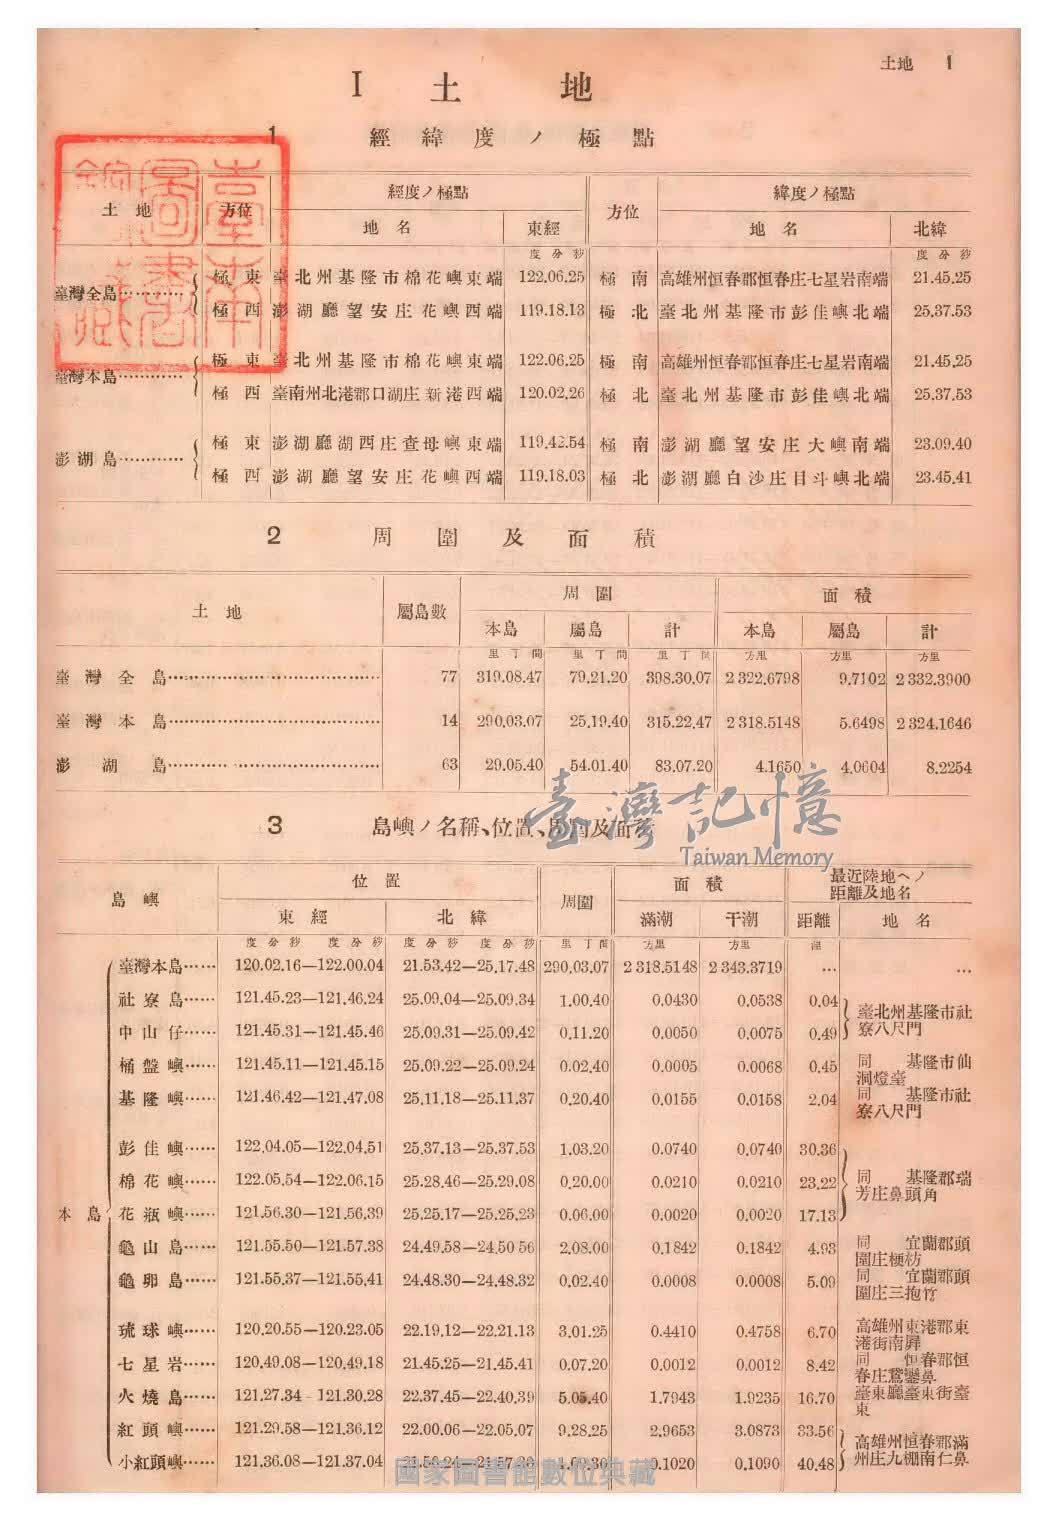 土地 1
I 土 地
1 經緯度ノ極點
土地 方位 經度ノ極點 方位 緯度ノ極點
地名 東經 地名 北緯
度 分 秒 度 分 秒
臺灣全島………… 極東 臺北州基隆市棉花嶼東端 122.06.25 極南 高雄州恒春郡恒春庄七星岩南端 21.45.25
極西 澎湖廳望安庄花嶼西端 119.18.13 極北 臺北州基隆市彭佳嶼北端 25.37.53
臺灣本島………… 極東 臺北州基隆市棉花嶼東端 122.06.25 極南 高雄州恒春郡恒春庄七星岩南端 21.45.25
極西 臺南州北港郡口湖庄新港西端 120.02.26 極北 臺北州基隆市彭佳嶼北端 25.37.53
澎湖島………… 極東 澎湖廳湖西庄查母嶼東端 119.42.54 極南 澎湖廳望安庄大嶼南端 23.09.40
極西 澎湖廳望安庄花嶼西端 119.18.03 極北 澎湖廳白沙庄目斗嶼北端 23.45.41
2 周圍及面積
土地 屬島數 周圍 面積
本島 屬島 計 本島 屬島 計
里 丁 間 里 丁 間 里 丁 間 方里 方里 方里
臺灣全島………… 77 319.08.47 79.21.20 398.30.07 2 322.6798 9.7102 2 332.3900
臺灣本島………… 14 290.03.07 25.19.40 315.22.47 2 318.5148 5.6498 2 324.1646
澎湖島………… 63 29.05.40 54.01.40 83.07.20 4.1650 4.0604 8.2254
臺灣記憶
Taiwan Memory
3 島嶼ノ名稱、位置、周圍及面積
島嶼 位置 周圍 面積 最近陸地ヘノ距離及地名
東經 北緯 滿潮 干潮 距離 地名
度 分 秒 度 分 秒 度 分 秒 度 分 秒 里 丁 間 方里 方里 浬
本島
臺灣本島…… 120.02.16—122.00.04 21.53.42—25.17.48 290.03.07 2 318.5148 2 343.3719 … …
社寮島…… 121.45.23—121.46.24 25.09.04—25.09.34 1.00.40 0.0430 0.0538 0.04 臺北州基隆市社寮八尺門
中山仔…… 121.45.31—121.45.46 25.09.31—25.09.42 0.11.20 0.0050 0.0075 0.49
桶盤嶼…… 121.45.11—121.45.15 25.09.22—25.09.24 0.02.40 0.0005 0.0068 0.45 同 基隆市仙洞燈臺
基隆嶼…… 121.46.42—121.47.08 25.11.18—25.11.37 0.20.40 0.0155 0.0158 2.04 同 基隆市社寮八尺門
彭佳嶼…… 122.04.05—122.04.51 25.37.13—25.37.53 1.03.20 0.0740 0.0740 30.36 同 基隆郡瑞芳庄鼻頭角
棉花嶼…… 122.05.54—122.06.15 25.28.46—25.29.08 0.20.00 0.0210 0.0210 23.22
花瓶嶼…… 121.56.30—121.56.39 25.25.17—25.25.23 0.06.00 0.0020 0.0020 17.13
龜山島…… 121.55.50—121.57.38 24.49.58—24.50 56 2.08.00 0.1842 0.1842 4.93 同 宜蘭郡頭圍庄梗枋
龜卵島…… 121.55.37—121.55.41 24.48.30—24.48.32 0.02.40 0.0008 0.0008 5.09 同 宜蘭郡頭圍庄三抱竹
琉球嶼…… 120.20.55—120.23.05 22.19.12—22.21.13 3.01.25 0.4410 0.4758 6.70 高雄州東港郡東港街南屏
七星岩…… 120.49.08—120.49.18 21.45.25—21.45.41 0.07.20 0.0012 0.0012 8.42 同 恒春郡恒春庄鵞鑾鼻
火燒島…… 121.27.34 121.30.28 22.37.45—22.40.39 5.05.40 1.7943 1.9235 16.70 臺東廳臺東街臺東
紅頭嶼…… 121.29.58—121.36.12 22.00.06—22.05.07 9.28.25 2.9653 3.0873 33.56 高雄州恒春郡滿州庄九棚南仁鼻
小紅頭嶼…… 121.36.08—121.37.04 0.1020 0.1090 40.48
國家圖書館數位典藏